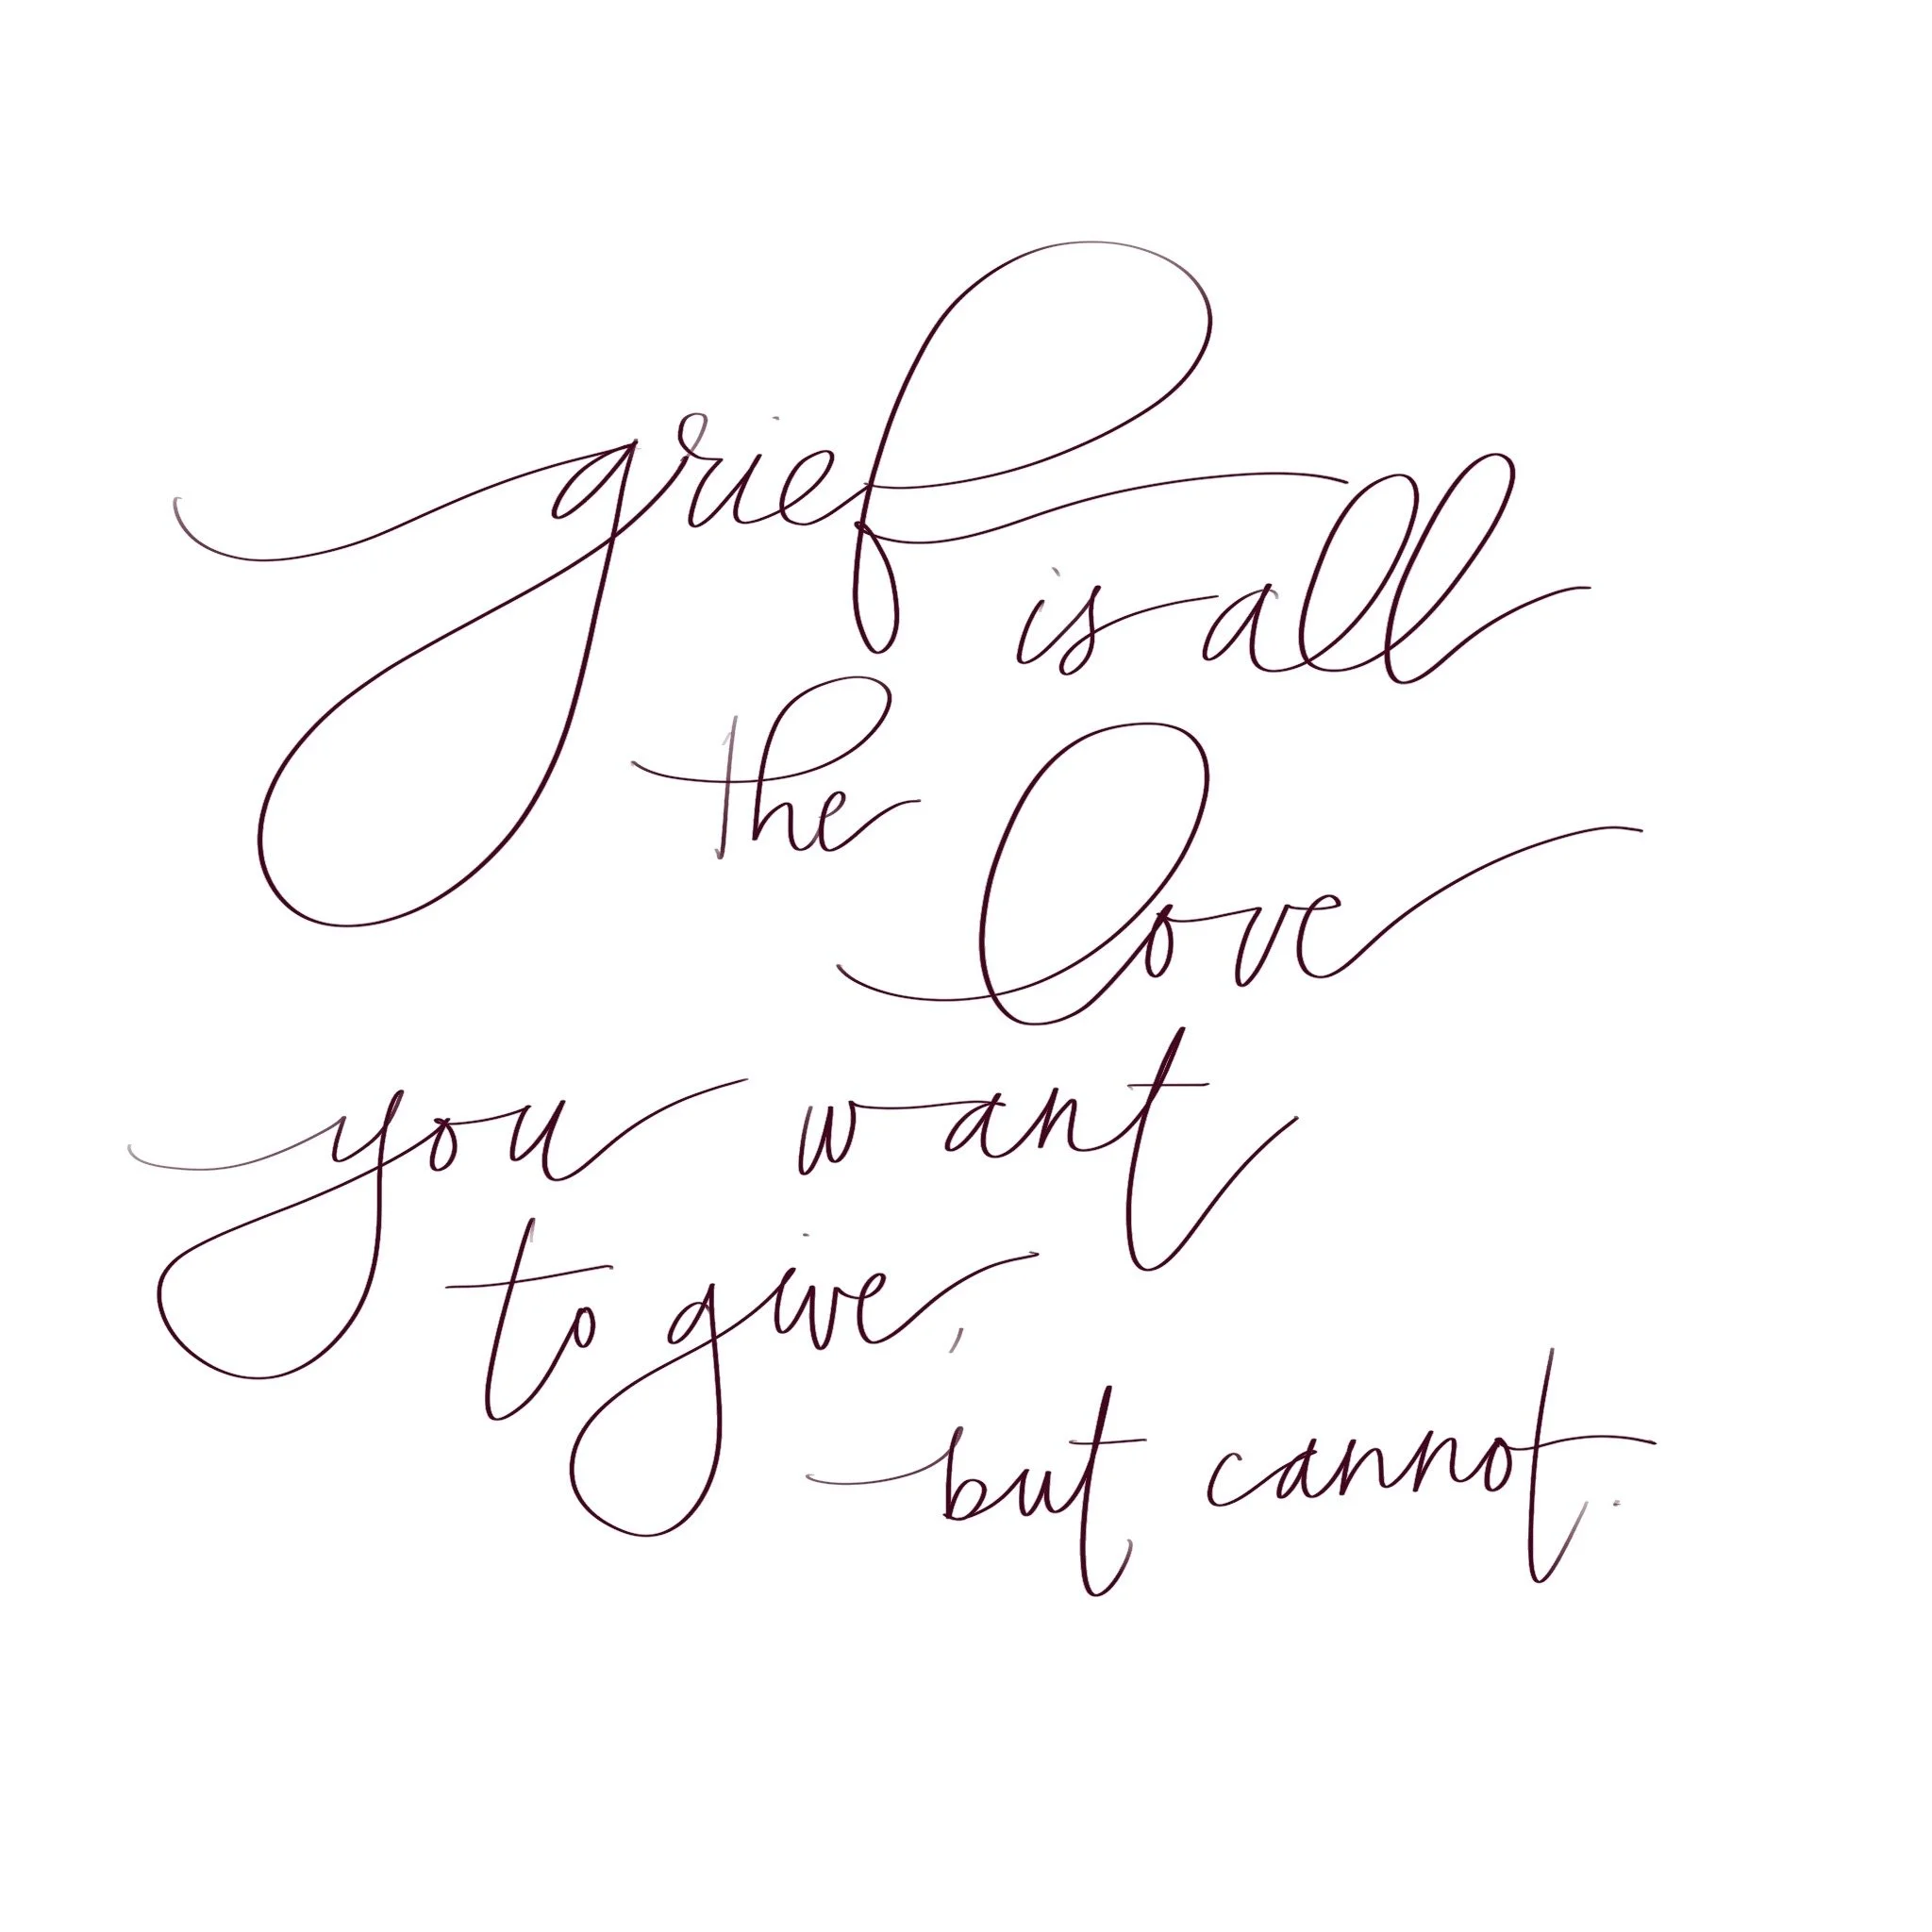 grief is all
the love
you want
to give,
but cannot.